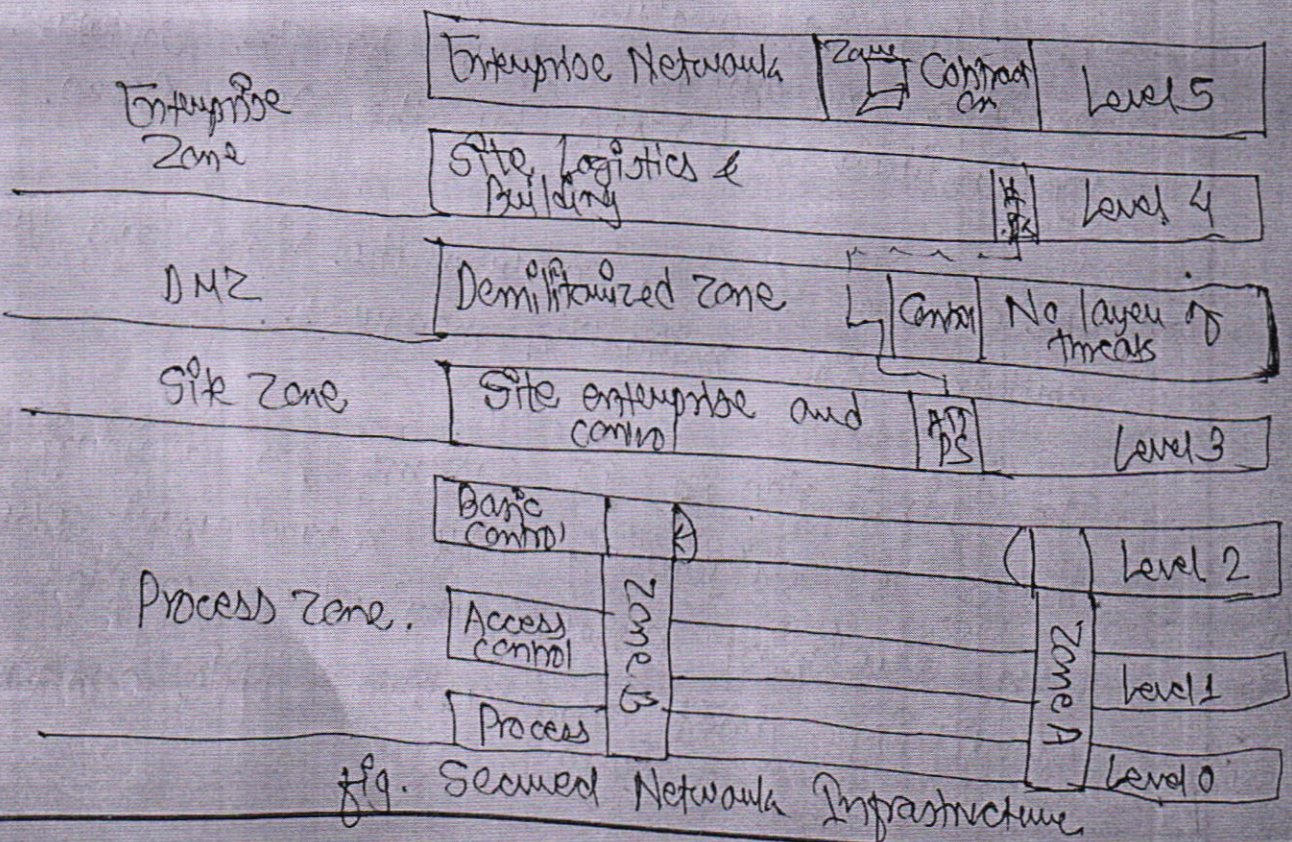 Enterprise Zone
Enterprise Network
Zone
Level 5
Site, Logistics &
Building
Level 4
DMZ
Demilitarized Zone
Control
No layer of
threats
Site Zone
Site enterprise and
control
Level 3
Process Zone.
Basic
control
Level 2
Access
control
Level 1
Process
Level 0
Zone B
Zone A
fig. Secured Network Infrastructure